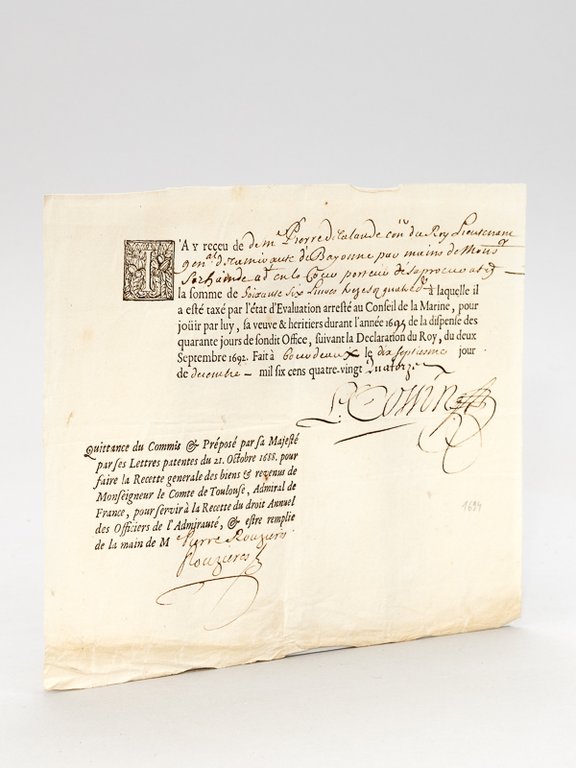 J'AY reçeu de de mr Pierre de Lalande conr du Roy Lieutenant
genal d'Lamirauté de Bayonne par mains de Monsr
porteur de sa procuration
la somme de Soixante Six Livres treze s quatre d à laquelle il
a esté taxé par l'état d'Evaluation arresté au Conseil de la Marine, pour
joüir par luy, sa veuve & heritiers durant l'année 1695 de la dispense des
quarante jours de sondit Office, suivant la Declaration du Roy, du deux
Septembre 1692. Fait à bourdeaux le dix septiesme jour
de decembre mil six cens quatre-vingt quatorze
Quittance du Commis & Préposé par sa Majesté
par ses Lettres patentes du 21. Octobre 1688. pour
faire la Recette generale des biens & revenus de
Monseigneur le Comte de Toulouse, Admiral de
France, pour servir à la Recette du droit Annuel
des Officiers de l'Admirauté, & estre remplie
de la main de M Pierre Rouzieres
Rouzieres
1694